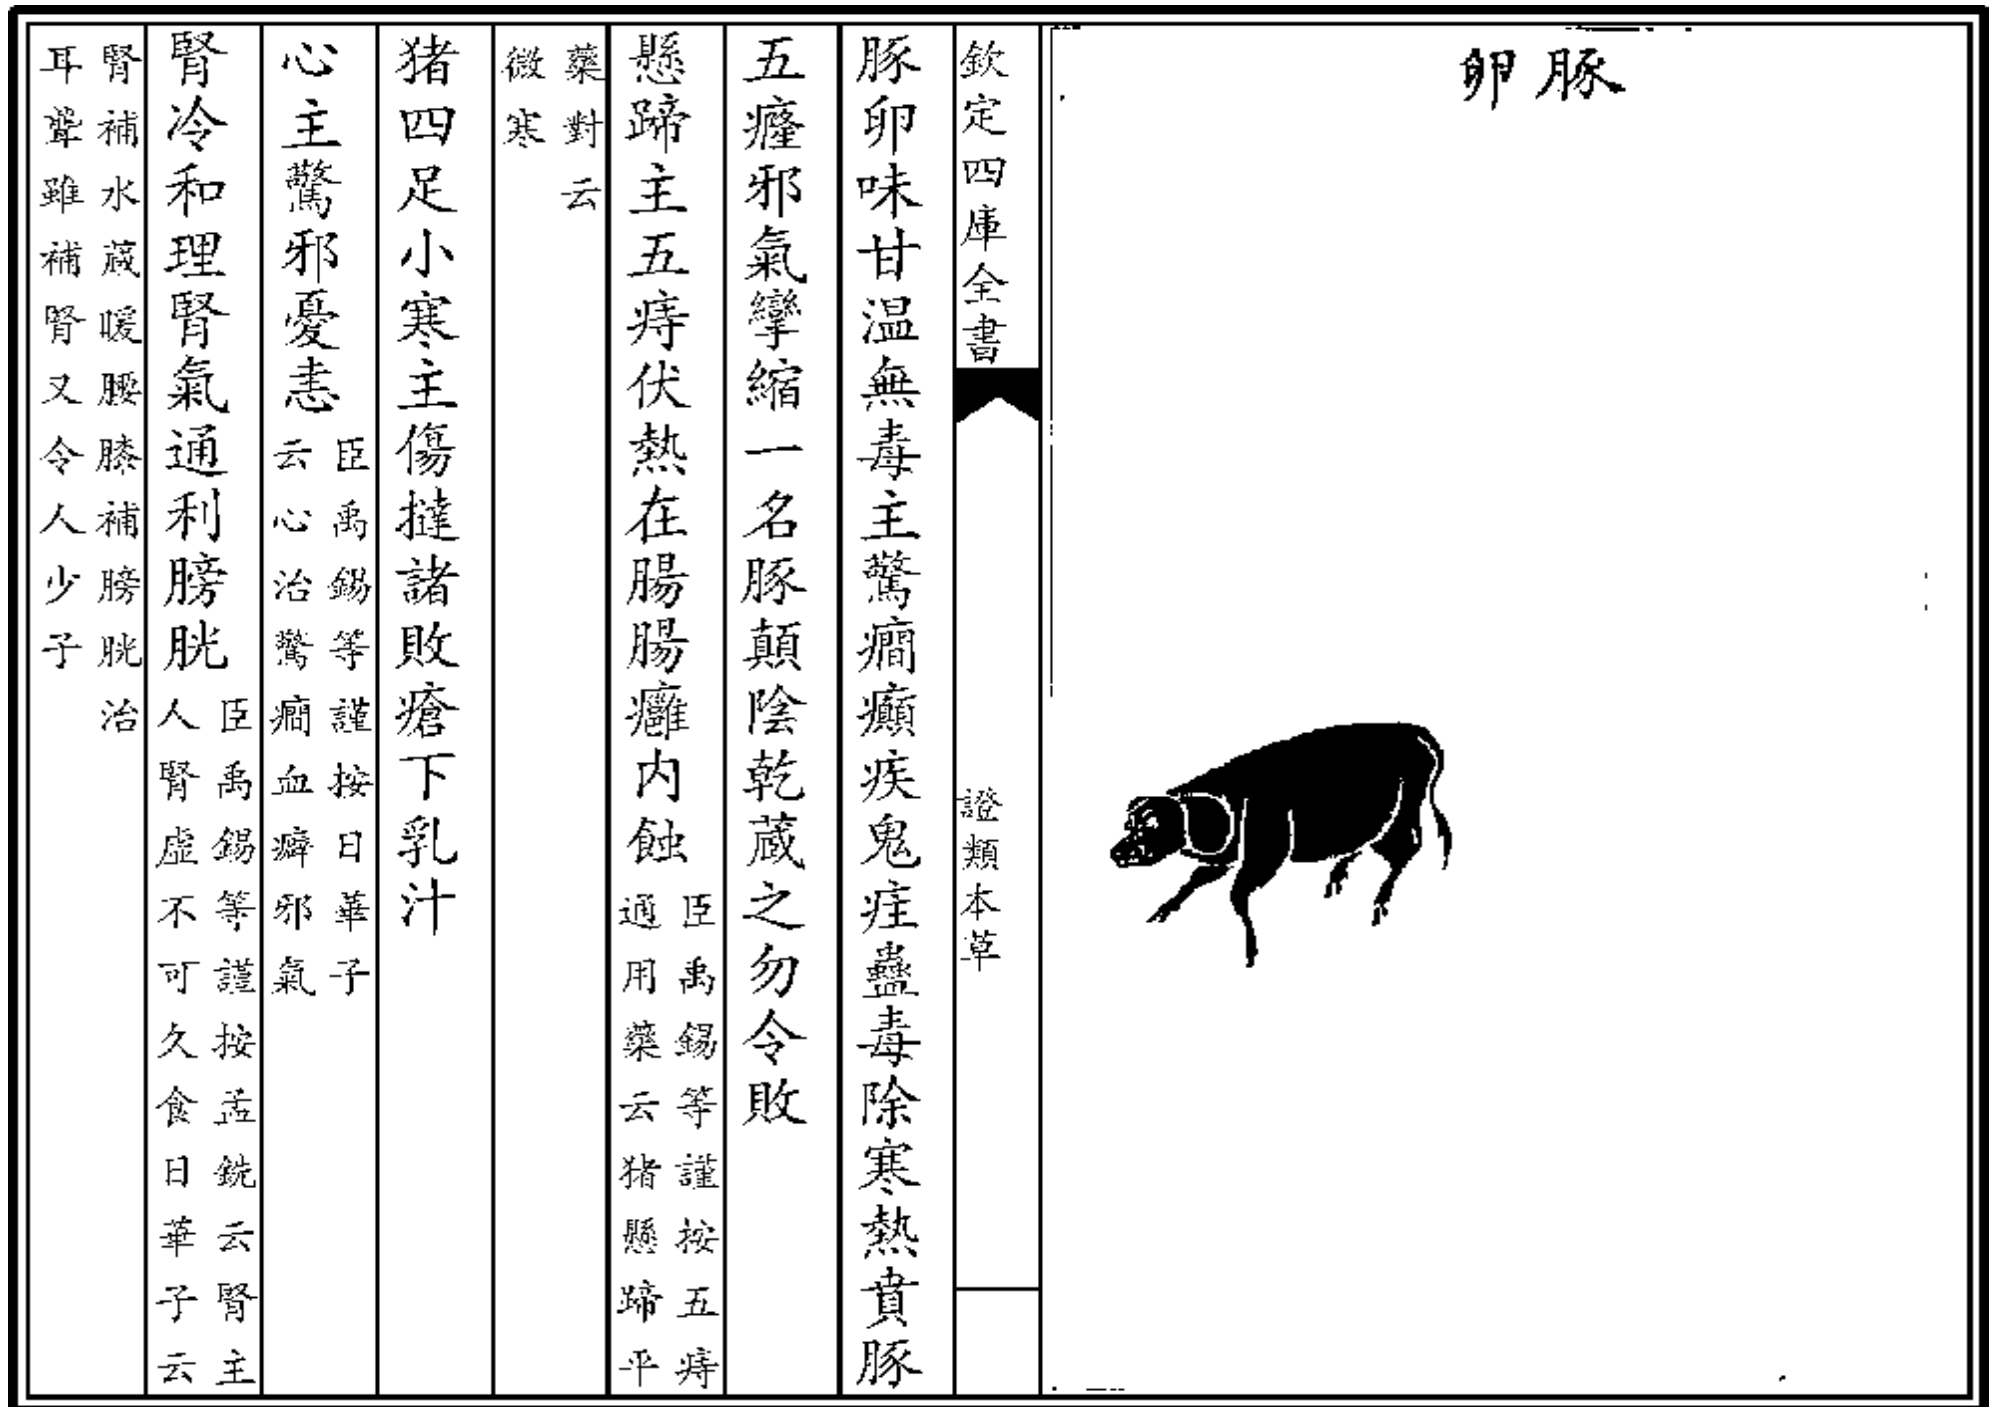 豚卵
欽定四庫全書
證類本草
豚卵味甘温無毒主驚癎癲疾鬼疰蠱毒除寒熱賁豚
五癃邪氣攣縮一名豚顛陰乾蔵之勿令敗
懸蹄主五痔伏熱在腸腸癰内蝕
臣禹錫等謹按五痔
通用藥云猪懸蹄平
藥對云
微寒
猪四足小寒主傷撻諸敗瘡下乳汁
心主驚邪憂恚
臣禹錫等謹按日華子
云心治驚癎血癖邪氣
腎冷和理腎氣通利膀胱
臣禹錫等謹按孟銑云腎主
人腎虛不可久食日華子云
腎補水蔵暖腰膝補膀胱治
耳聾雖補腎又令人少子